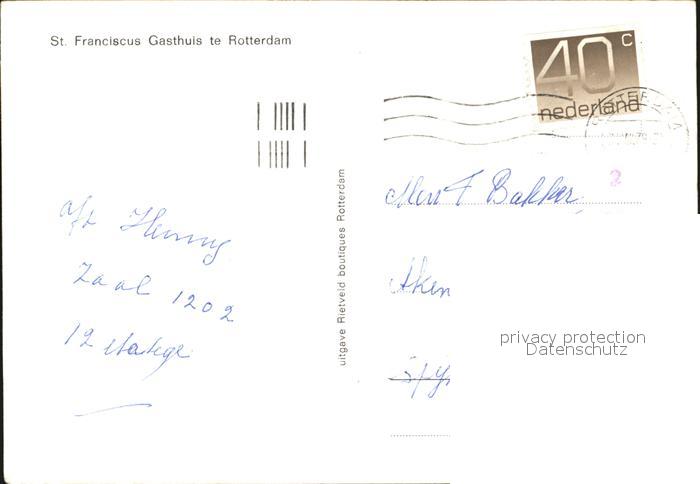 St. Franciscus Gasthuis te Rotterdam
40 c
nederland
Zaal 1202
12 etage
uitgave Rietveld boutiques Rotterdam
F Bakker
2
Aken
privacy protection
Datenschutz